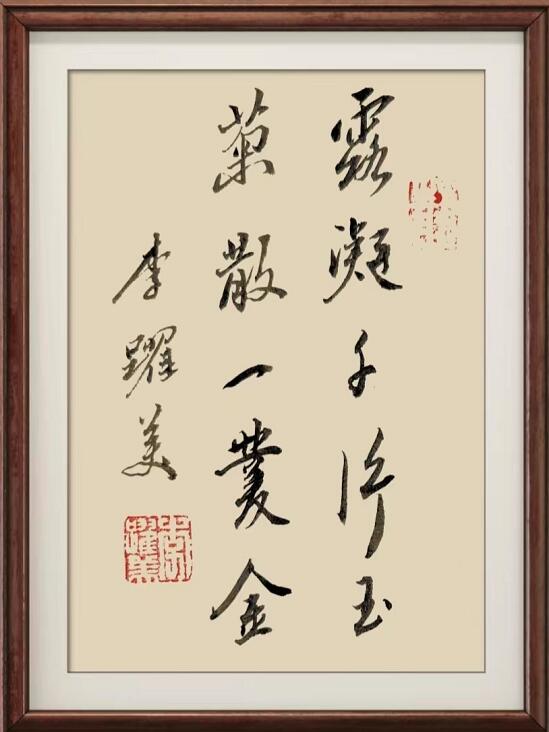 露凝千片玉
菊散一叢金
李躍美